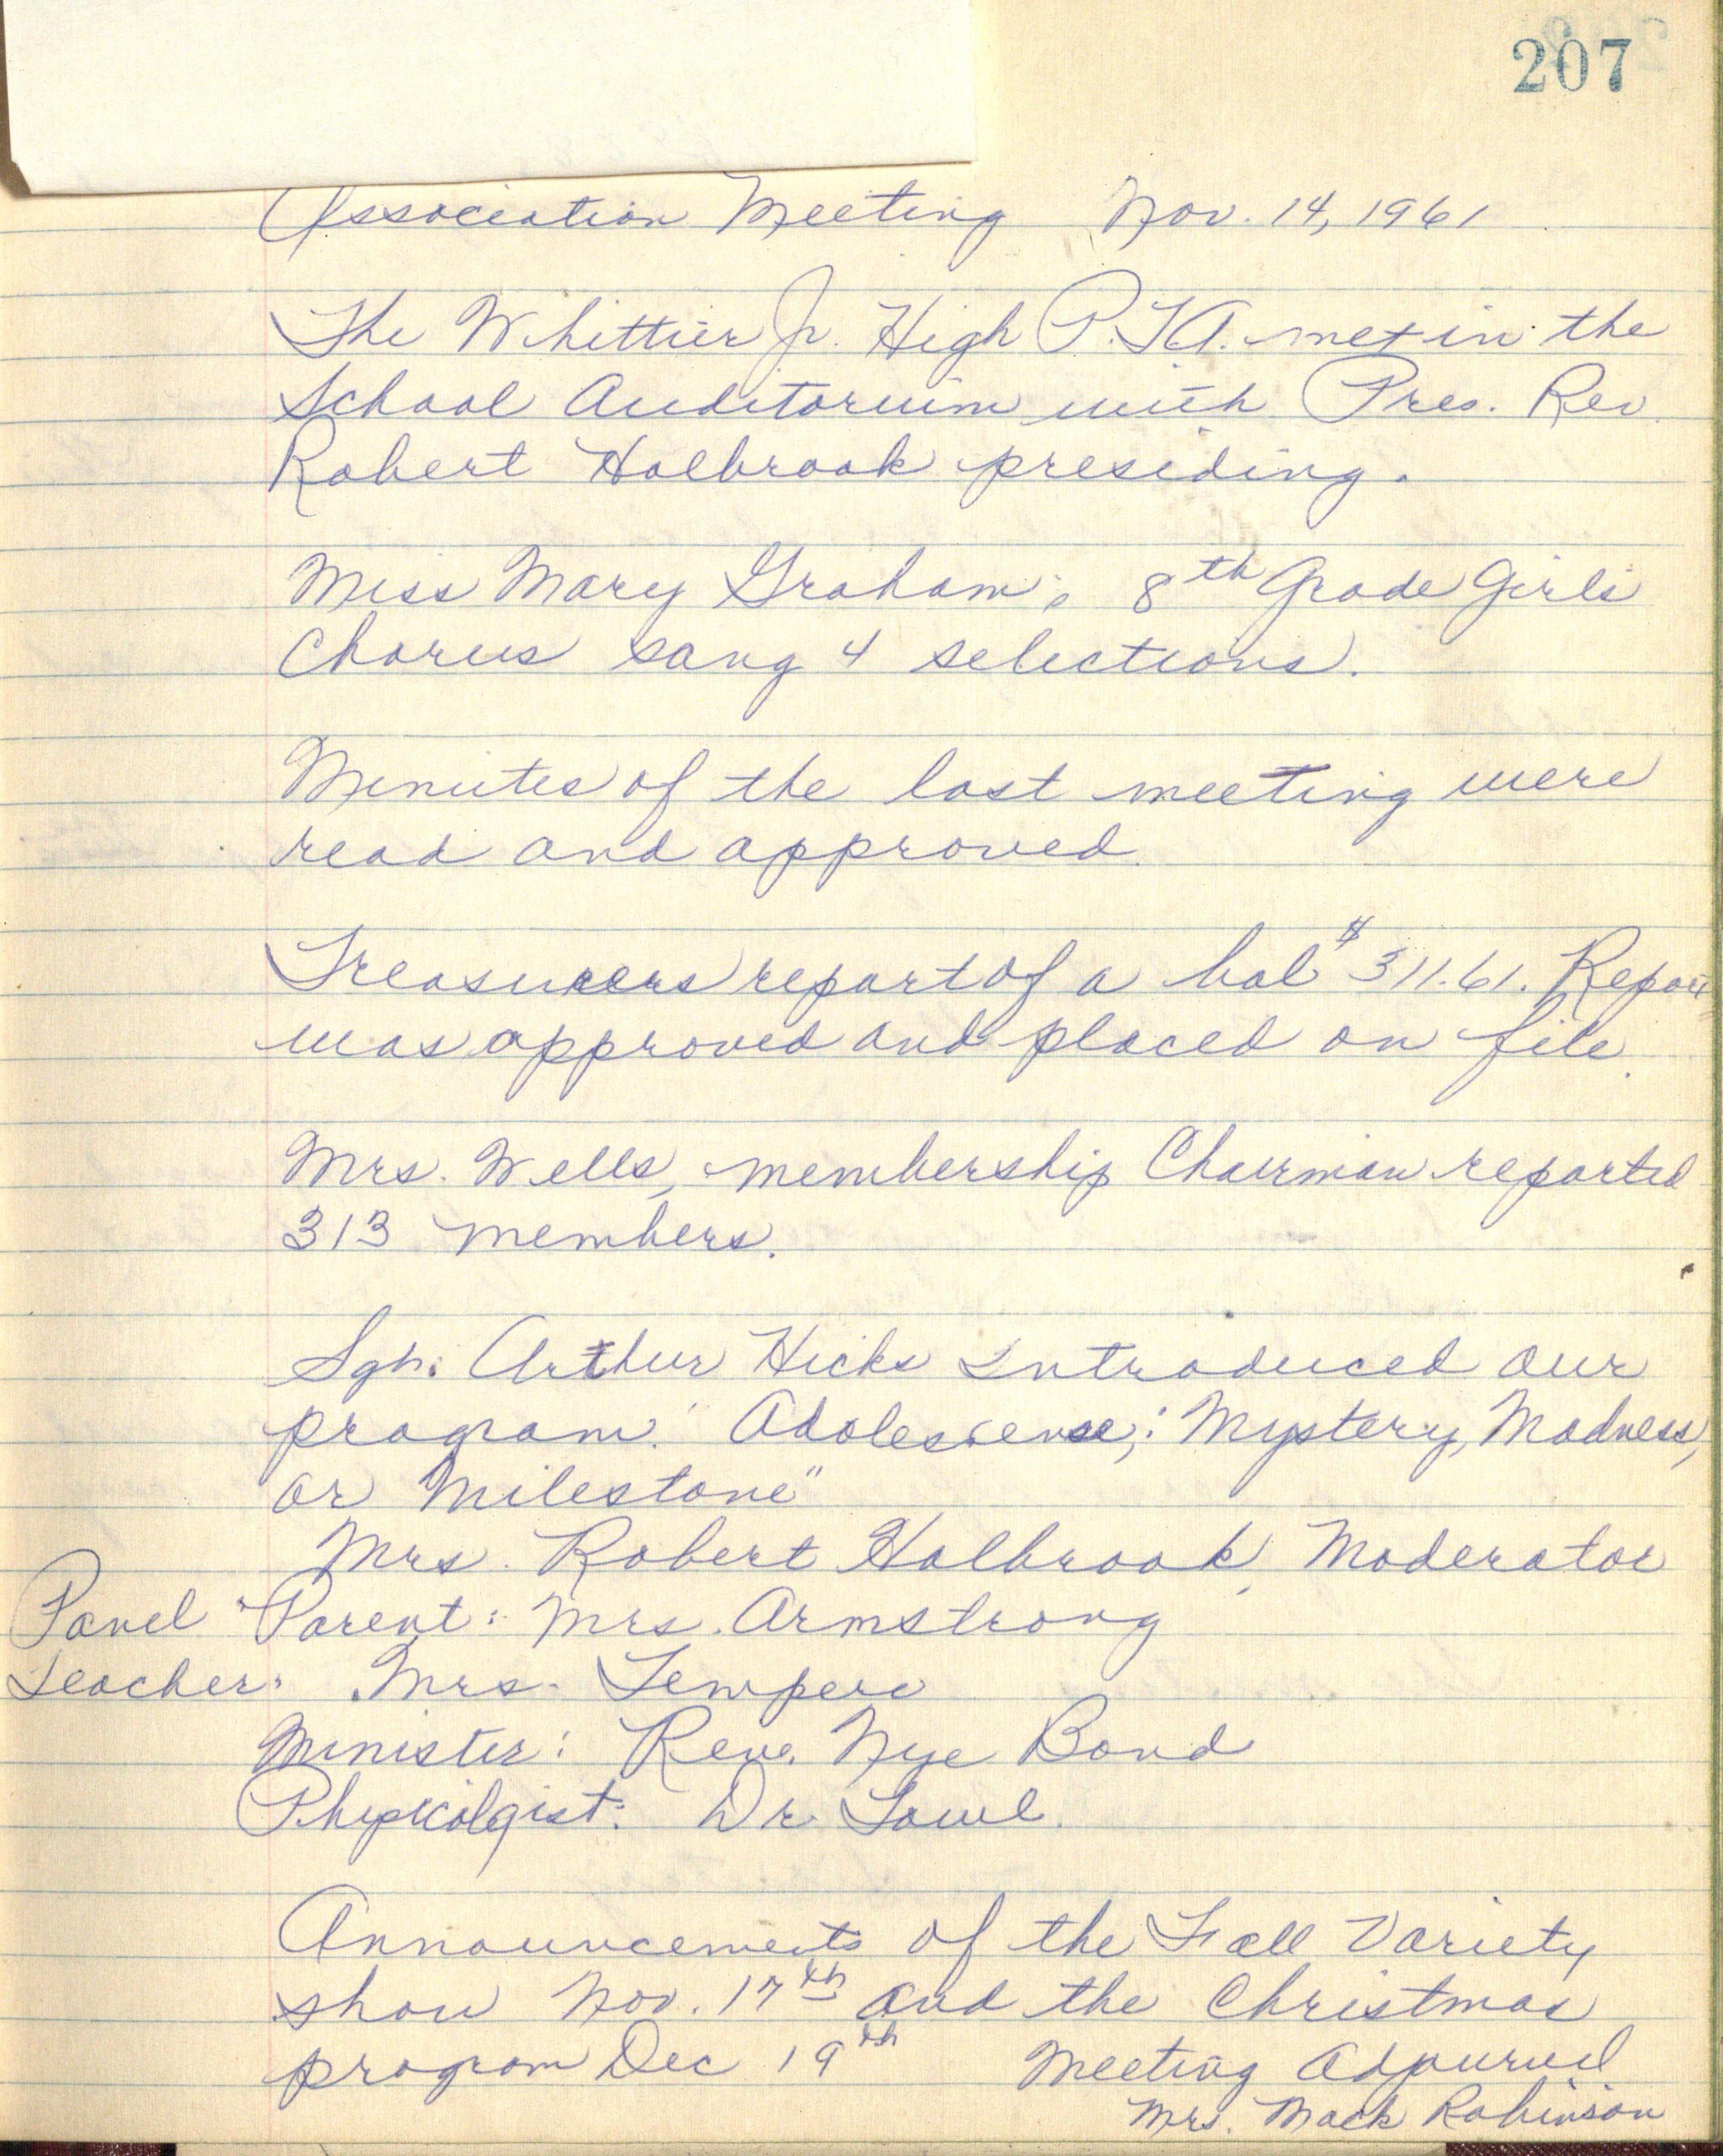 207
Association Meeting Nov. 14, 1961
The Whittier Jr. High P.T.A. met in the
School Auditorium with Pres. Rev.
Robert Holbrook presiding.
Miss Mary Graham, 8th Grade Girls
Chorus sang 4 selections.
Minutes of the last meeting were
read and approved.
Treasurers report of a bal $311.61. Report
was approved and placed on file.
Mrs. Wells, membership Chairman reported
313 members.
Sgt. Arthur Hicks introduced our
program. "Adolescense; Mystery, Madness,
or Milestone"
Mrs. Robert Holbrook, Moderator
Panel Parent: Mrs. Armstrong
Teacher: Mrs. Tempero
Minister: Reve. Nye Bond
Dr.
Announcements of the Fall Variety
show Nov. 17th and the Christmas
program Dec 19th Meeting Adjourned
Mrs. Mack Robinson